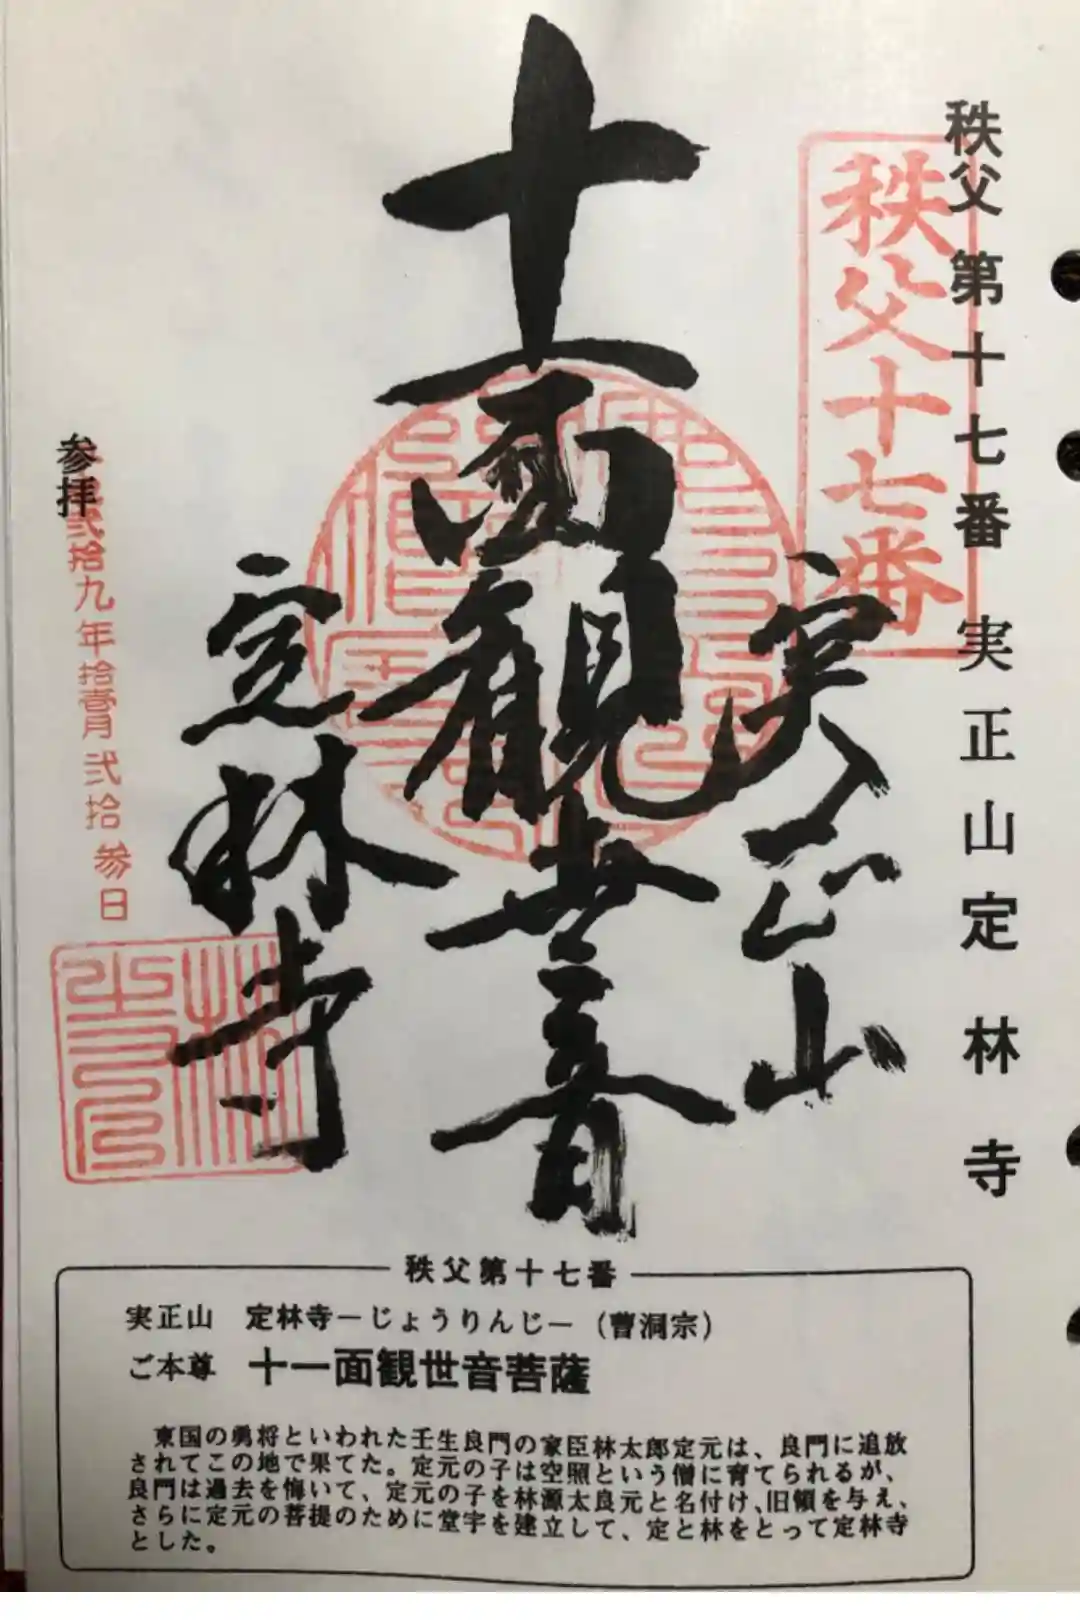 秩父第十七番 実正山定林寺
秩父十七番
実正山
十一面観世音
定林寺
参拝
弐拾九年拾壹月弐拾参日
秩父第十七番
実正山 定林寺－じょうりんじ－（曹洞宗）
ご本尊 十一面観世音菩薩
東国の勇将といわれた壬生良門の家臣林太郎定元は、良門に追放
されてこの地で果てた。定元の子は空照という僧に育てられるが、
良門は過去を悔いて、定元の子を林源太良元と名付け、旧領を与え、
さらに定元の菩提のために堂宇を建立して、定と林をとって定林寺
とした。